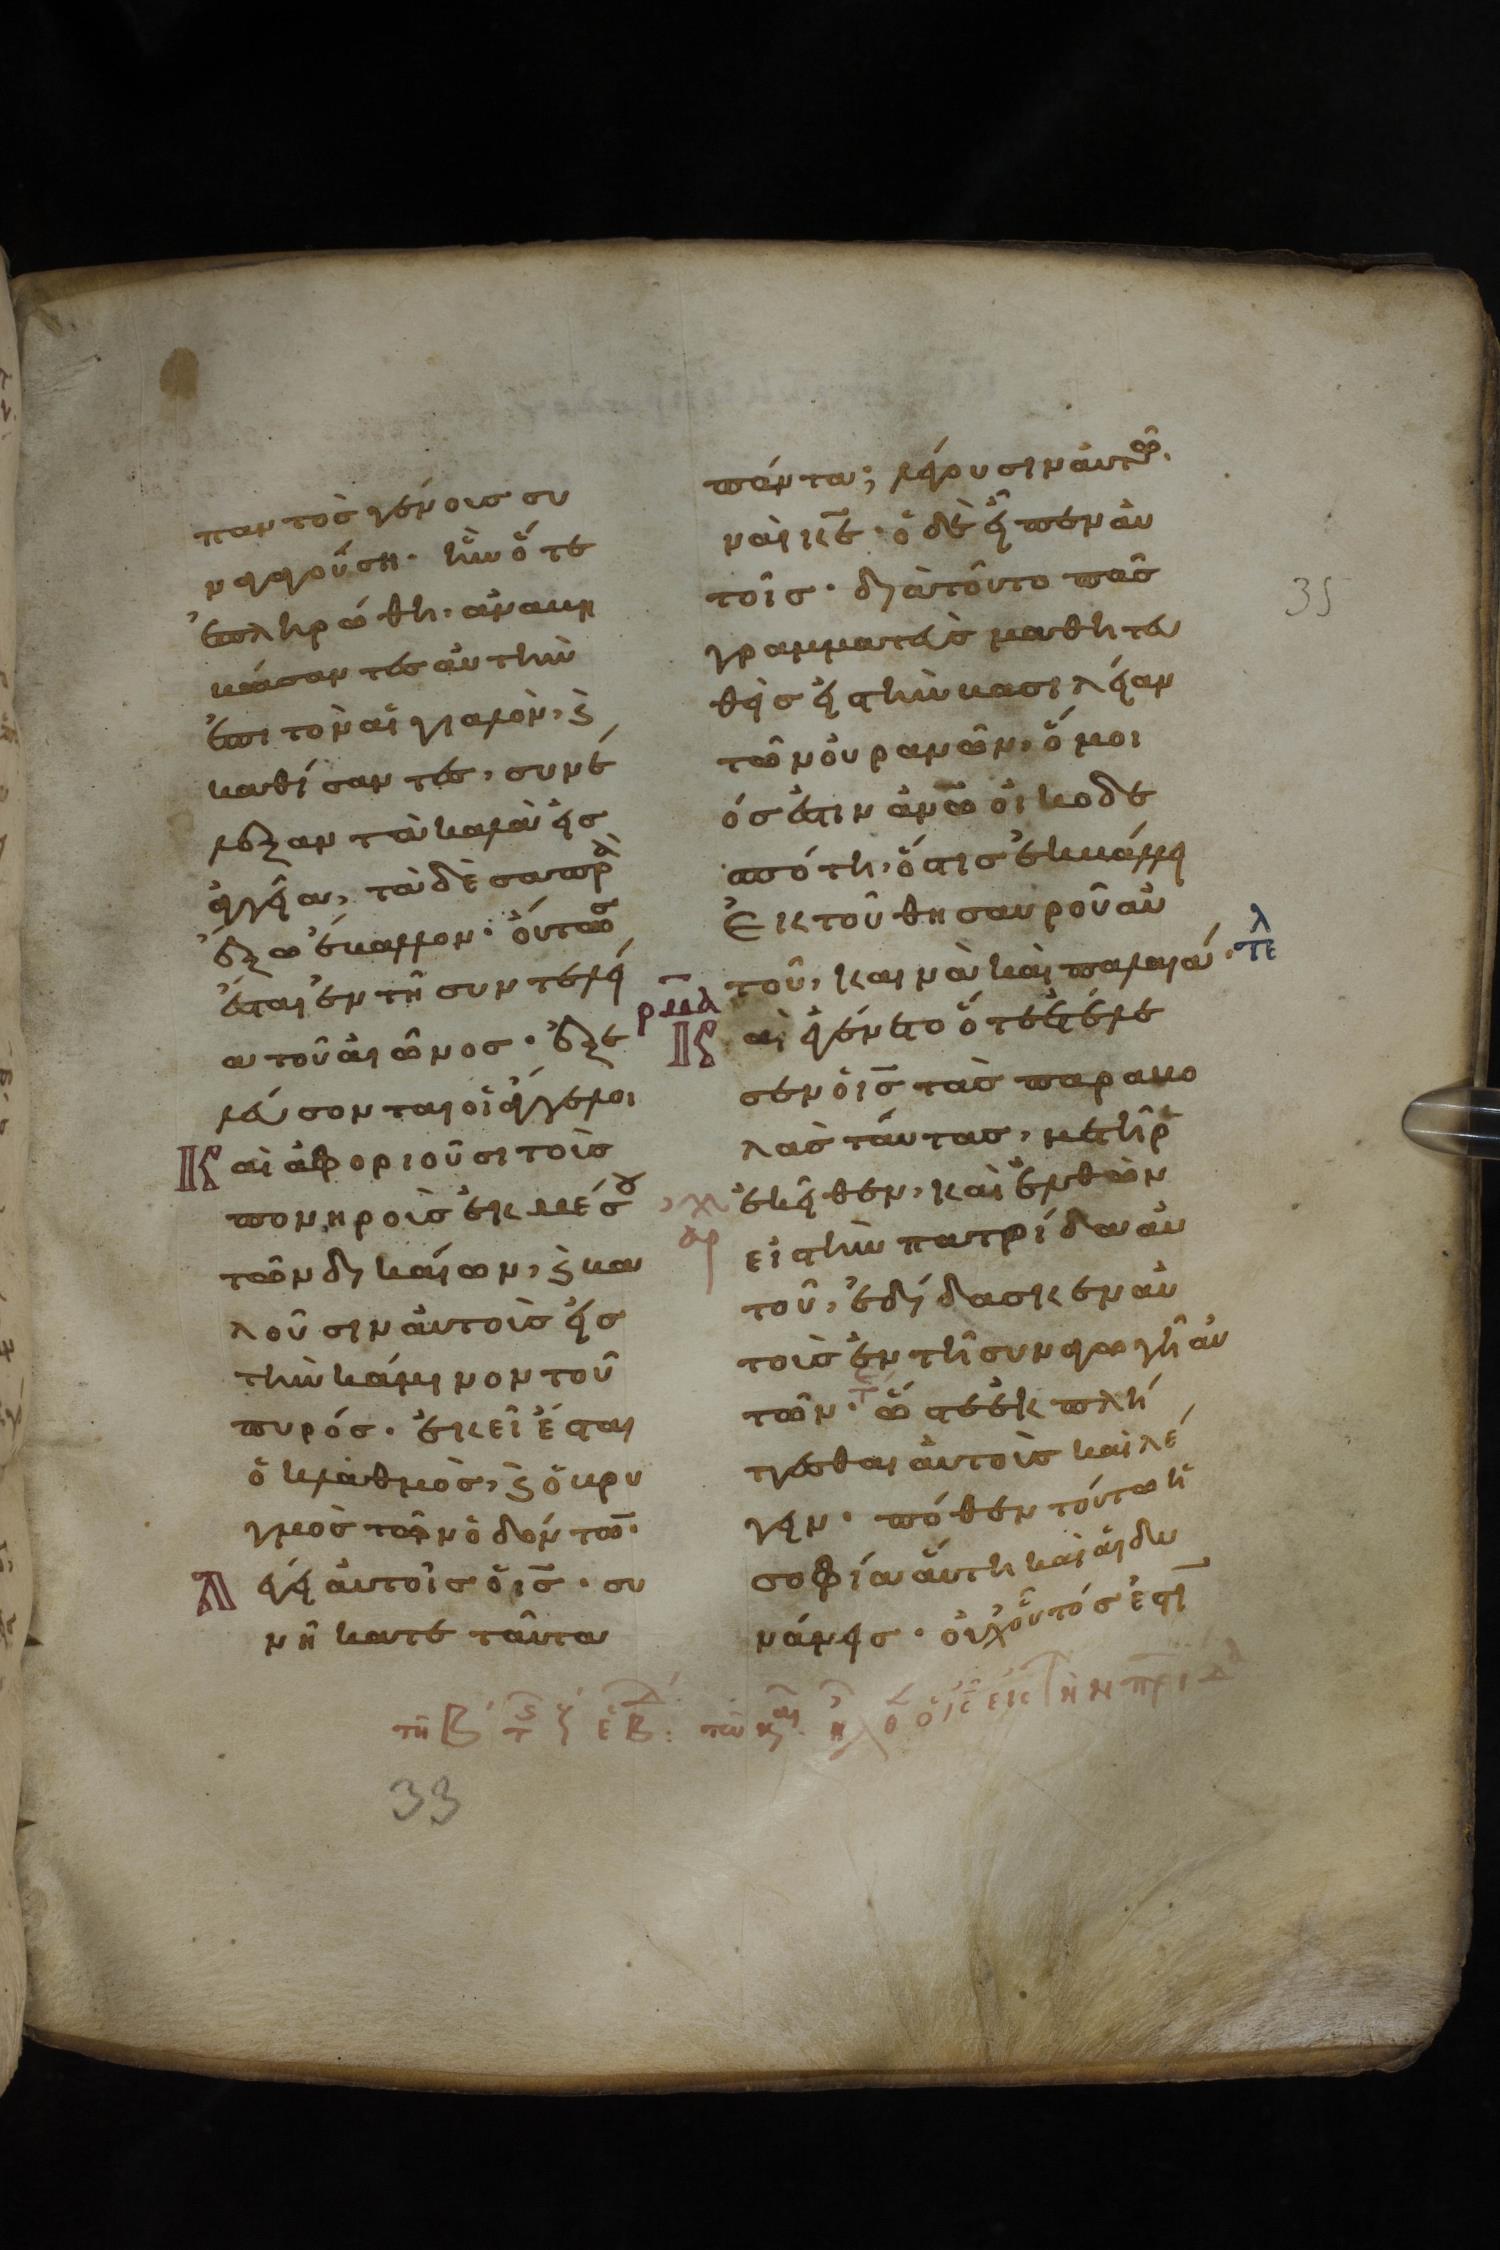 παντὸς γένους συ
ναγαγούση· ἣν ὅτε
ἐπληρώθη, ἀναβη
βάσαντες αὐτὴν
ἐπι τὸν αἰγιαλὸν, ϗ
καθίσαντες, συνέ
λεξαν τὰ καλὰ εἰς
ἀγγεῖα, τὰ δὲ σαπρὰ
ἔξω ἔβαλλον· οὕτως
ἔσται ἐν τῆ συντελεί
α τοῦ αἰῶνος· ἐξε
λεύσονται οἱ ἄγγελοι
Καὶ ἀφοριοῦσι τοὺς
πονηροὺς ἐκ μέσου
τῶν δικαίων, ϗ βα
λοῦσιν αὐτοὺς εἰς
τὴν κάμινον τοῦ
πυρός· ἐκεῖ ἔσται
ὁ κλαυθμὸς, ϗ ὁ βρυ
γμὸς τῶν ὀδόντω̅·
Λέγει αὐτοῖς ὁ ι̅ς̅· συ
νήκατε ταῦτα
πάντα; λέγουσιν αὐτῶ·
ναὶ κ̅ε̅· ὁ δὲ εἶπεν αὐ
τοῖς· διὰ τοῦτο πᾶς
γραμματεὺς μαθητευ
θεὶς εἰς τὴν βασιλείαν
τῶν οὐρανῶν, ὅμοι
ός ἐστιν ἀν̅ω̅ οἰκοδε
σπότη, ὅστις ἐκβάλλει
Ἐκ τοῦ θησαυροῦ αὐ
τοῦ, καινὰ καὶ παλαιά· τε
λ
ρμα
Καὶ ἐγένετο ὅτε ἐτέλε
σεν ὁ ι̅ς̅ τὰς παραβο
λὰς ταύτας, μετῆρεν
ἐκεῖθεν, καὶ ἐλθὼν
αρχ
εἰς τὴν πατρίδα αὐ
τοῦ, ἐδίδασκεν αὐ
τοὺς ἐν τῆ συναγωγῆ αὐ
τῶν· ὥστε ἐκπλή
τγεσθαι αὐτοὺς καὶ λέ
γειν· πόθεν τούτω ἡ
σοφία αὕτη καὶ αἱ δυ
νάμεις· οὐχ οὗτός ἐστι̅
τῆ β τ ϛ ζ εβ: τω κ
33
35